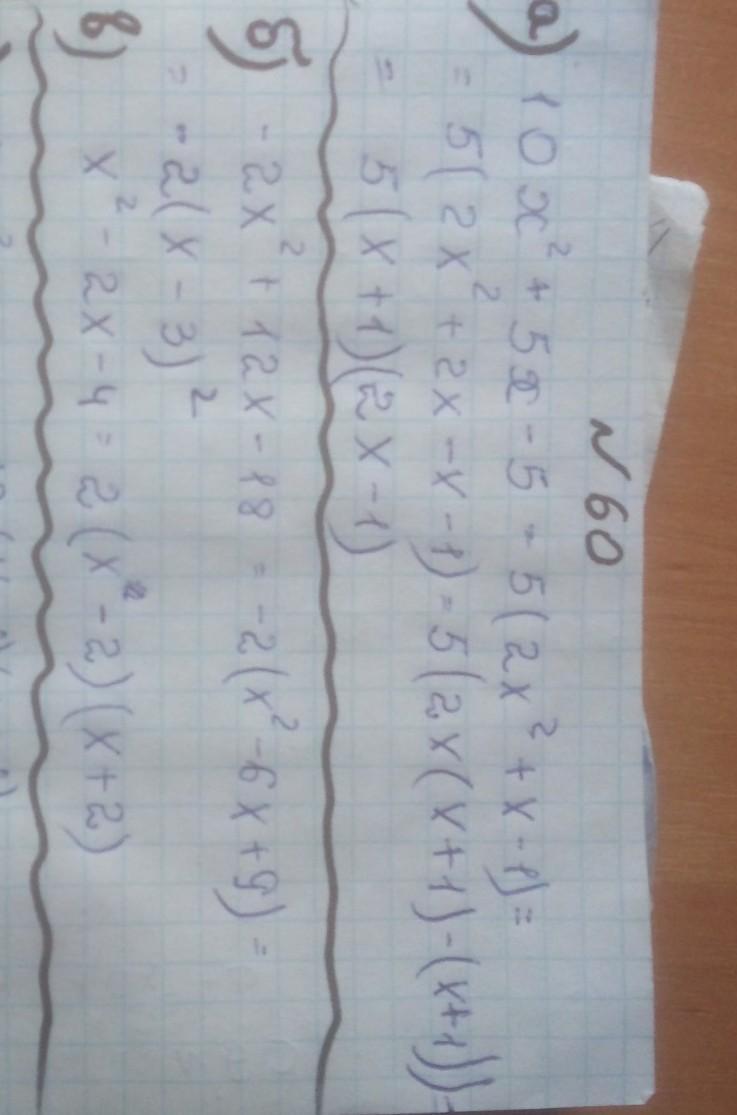 № 60
а) 10x² + 5x - 5 = 5(2x² + x - 1) =
= 5(2x² + 2x - x - 1) = 5(2x(x+1) - (x+1)) =
= 5(x+1)(2x-1)
б) -2x² + 12x - 18 = -2(x² - 6x + 9) =
= -2(x - 3)²
в) x² - 2x - 4 = 2(x - 2)(x + 2)